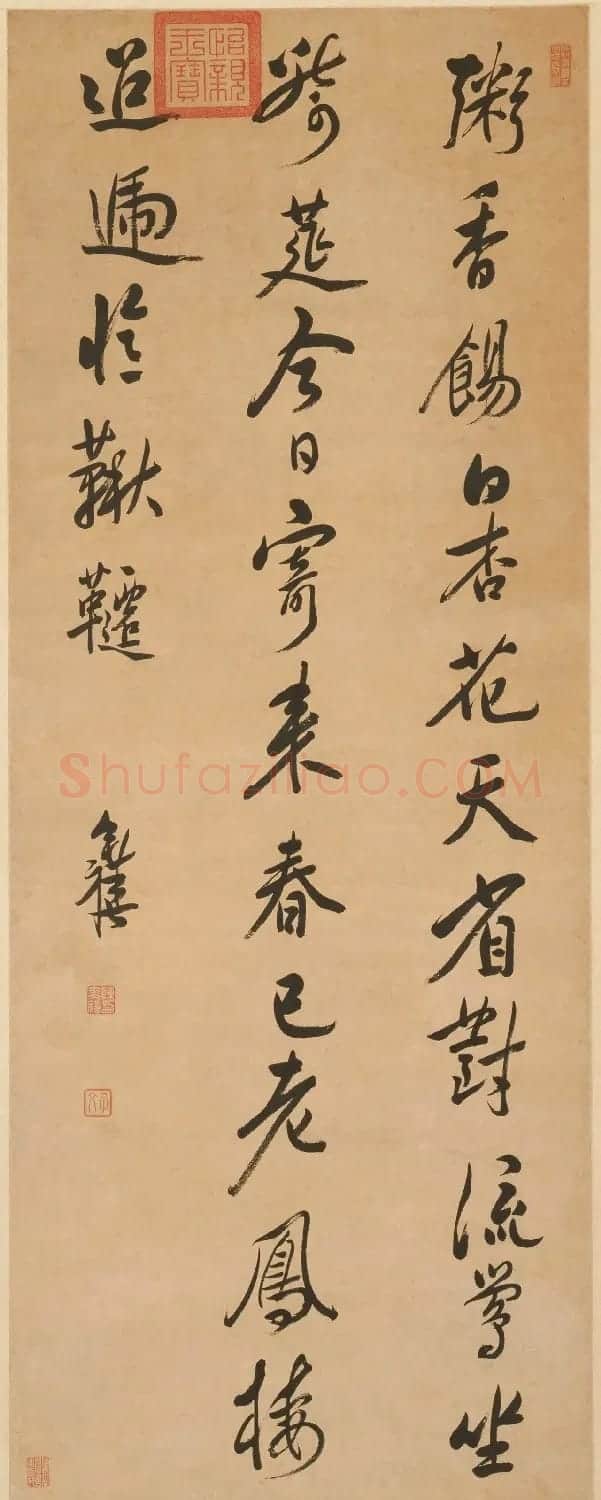 粥香餳白杏花天省對流鶯坐
綺筵今日寄來春已老鳳樓
迢遞憶鞦韆
怡親王寶
Shufaziliao.COM